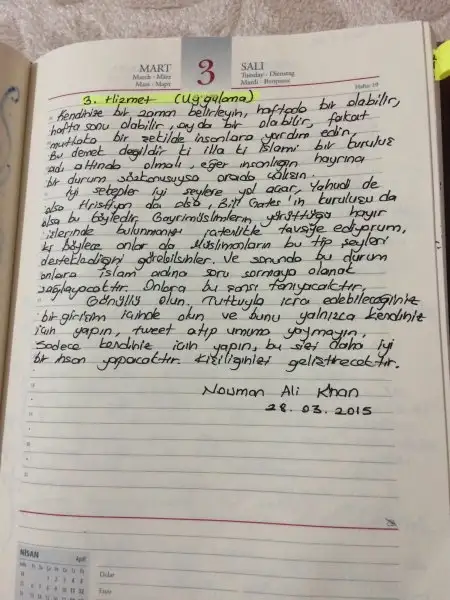 MART
March - März
Mars - Март
3
SALI
Tuesday - Dienstag
Mardi - Вторник
Hafta: 10
3. Hizmet (Uygulama)
Kendinize bir zaman belirleyin, haftada bir olabilir,
hafta sonu olabilir, ayda bir olabilir, fakat
mutlaka bir şekilde insanlara yardım edin.
Bu demek değildir ki illa ki İslami bir kuruluş
adı altında olmalı, eğer insanlığın hayrına
bir durum sözkonusuysa orada çalışın.
İyi sebepler iyi şeylere yol açar, Yahudi de
olsa Hristiyan da olsa, Bill Gates'in kuruluşu da
olsa bu böyledir. Gayrimüslimlerin yürüttüğü hayır
işlerinde bulunmanızı tavsiye ediyorum,
ki böylece onlar da Müslümanların bu tip şeyleri
desteklediğini görebilsinler. Ve sonunda bu durum
onlara islam adına soru sormaya olanak
sağlayacaktır. Onlara bu şansı tanıyacaktır.
Gönüllü olun, Tutkuyla icra edebileceğiniz
bir girişim içinde olun ve bunu yalnızca kendiniz
için yapın, tweet atıp umuma yaymayın.
Sadece kendiniz için yapın, bu sizi daha iyi
bir insan yapacaktır. Kişiliğinizi geliştirecektir.
Nouman Ali Khan
28.03.2015
NİSAN
April
Dolar
Euro